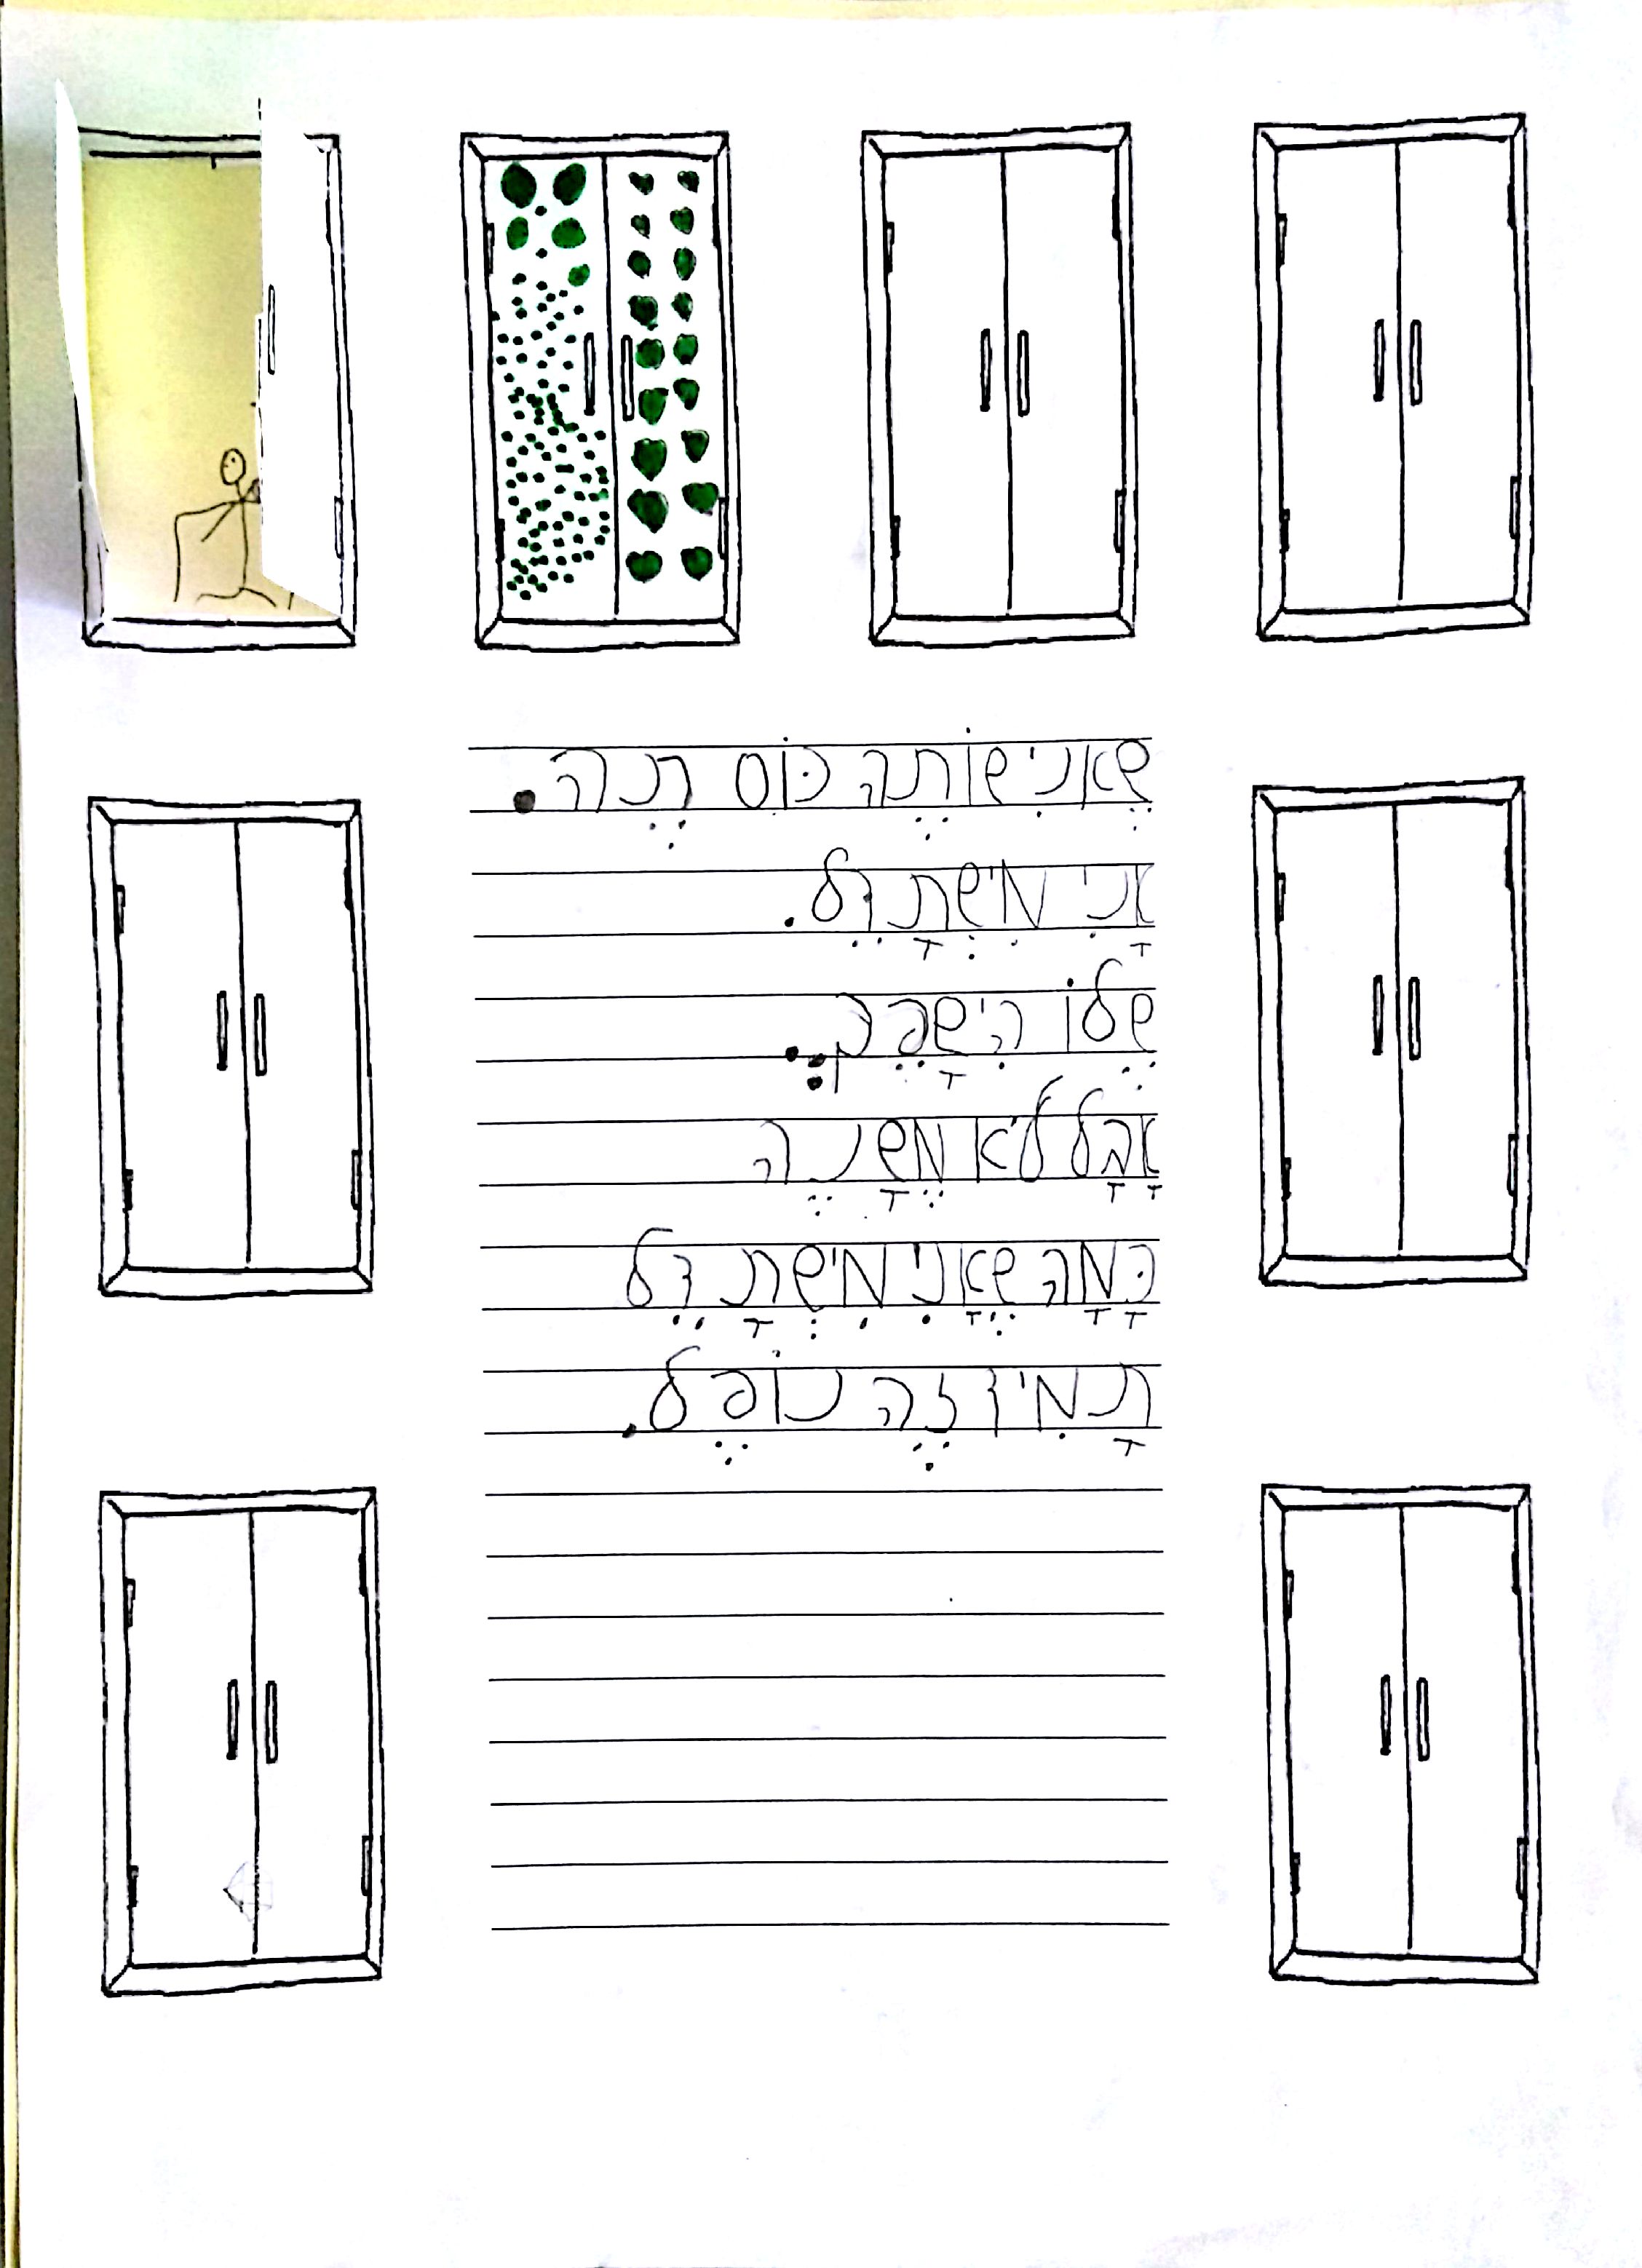 שֶׁאנִי שׁוֹתֶה כּוֹס תֶה.
אָנִי מִישְתָדֵל.
שֶלוֹ הִישָפֵךְ.
אָבָל לא מֶשָנֶה
כָּמָה שֶאָנִי מִישְתָדֵל
תָמִיד זֶה נוֹפֶל.